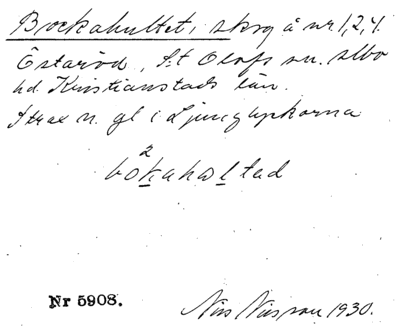 Bockahultet, skog å nr. 1, 2, 4.
Östaröd, S:t Olofs sn. Albo
hd. Kristianstads län.
Strax n. gl i Ljunglyckorna
2
bokahæltad
Nr 5908.
Nils Nilsson 1930.